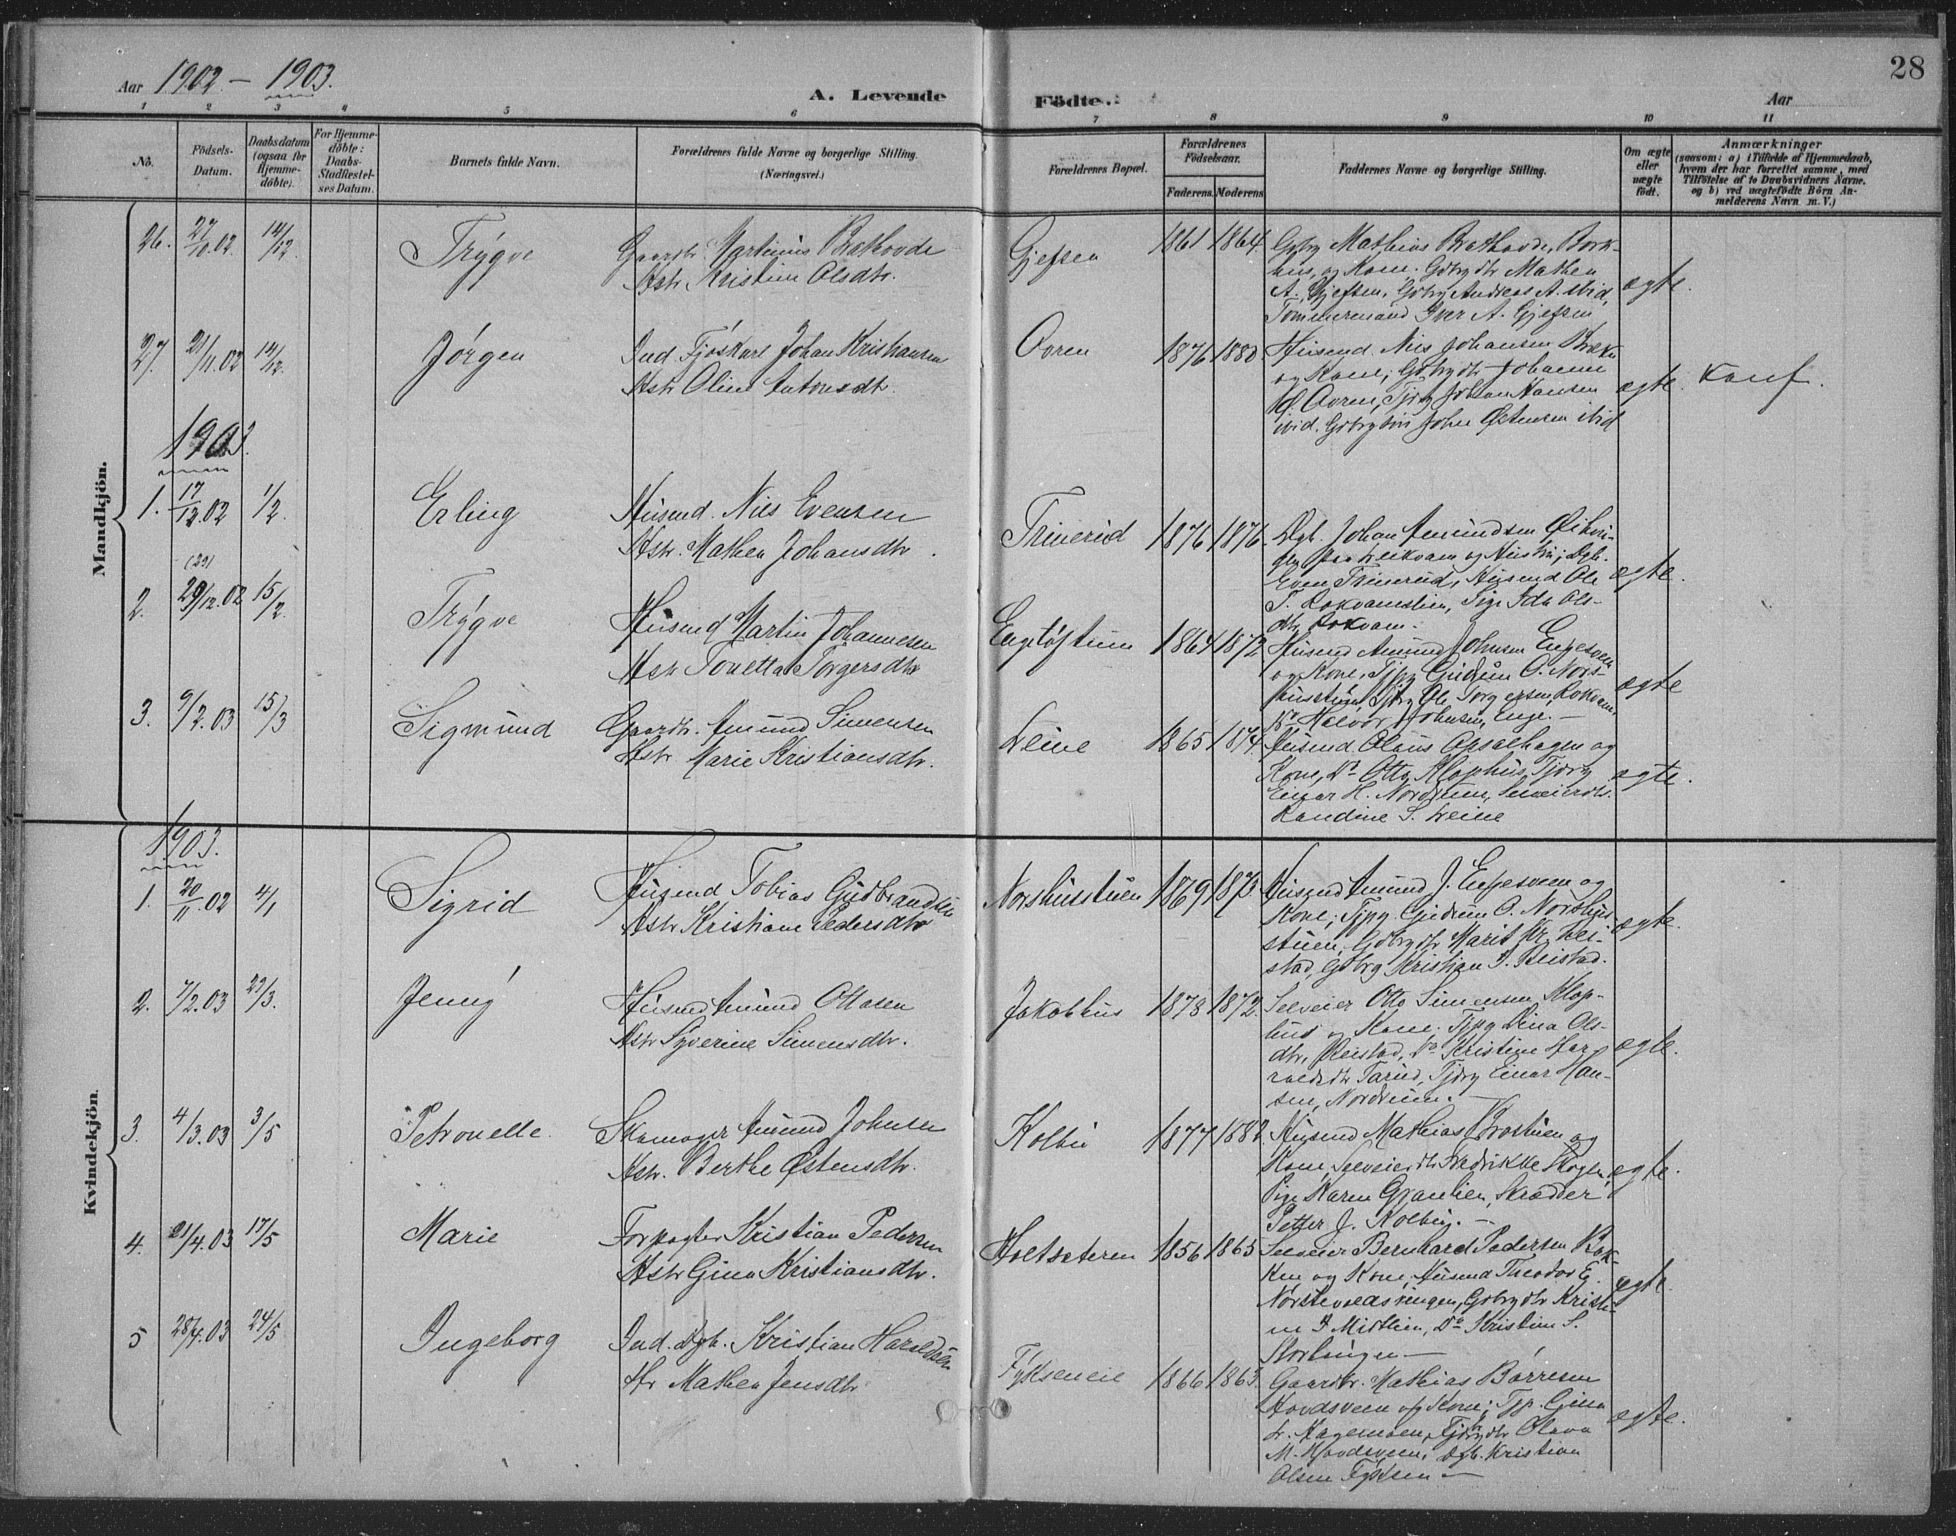 28
Aar 1902 – 1903.
A. Levende Födte.
Aar
1 2 3 4 5 6 7 8 9 10 11
No.
Födsels-
Datum.
Daabsdatum
(ogsaa for
Hjemme-
döbte).
For Hjemme-
döbte:
Daabs-
Stadfæstel-
ses Datum.
Barnets fulde Navn.
Forældrenes fulde Navne og borgerlige Stilling.
(Næringsvei.)
Forældrenes Bopæl.
Forældrenes
Födselsaar.
Faderens. Moderens.
Faddernes Navne og borgerlige Stilling.
Om ægte
eller
uægte
födt.
Anmærkninger
(saasom: a) i Tilfælde af Hjemmedaab,
hvem der har forrettet samme, med
Tilföielse af to Daabsvidners Navne,
og b) ved uægtefödte Börn An-
melderens Navn m. V.)
Mandkjön.
26. 27/10.02 14/12. Trygve
Gaardbr. Martinus Brathovde
Hstr. Kristine Olsdtr.
Gjefsen 1861 1864.
Gbrg Mathias Brathovde, Bork-
hus, og Kone. Gbrgdtr Mathea
A. Gjefsen, Gbrg Andreas A. ibid,
Tømmermand Iver A. Gjefsen
ægte.
27. 21/11.02 14/12. Jørgen
Ind. Fjøskarl Johan Kristiansen
Hstr Oline Antonsdtr.
Ovren 1876 1880.
Husmd. Nils Johansen
og Kone; Gbrgdtr Johanne
Ovren, Tjbrg Johan Hansen
ibid. Gbrgsøn John Østensen ibid
ægte. Konf.
1903.
1. 17/12.02 1/2. Erling
Husmd. Nils Evensen
Hstr. Mathea Johansdtr.
Trinerud 1876 1876.
Dgb. Johan Amundsen
og Hustru; Dgb.
Even Trinerud, Husmd Ole
T. Rokvamstien, Pige Ida Ols-
dtr Rokvam.
ægte.
(29)
2. 29/12.02 15/2. Trygve
Husmd Martin Johannesen
Hstr Tonetta Torgersdtr
Engeløfstuen 1864 1872
Husmd Amund Johnsen Engesveen
og Kone, Tjpg Gudrun O. Nors-
husstuen, Tjbrg Ole Torgersen, Rokvam,
Do Halvor Johnsen, Enge.
ægte
3. 9/2.03 15/3 Sigmund
Gaardbr. Amund Simensen
Hstr. Marie Kristiansdtr.
Leine 1865 1874.
Husmd Olaus Opsalhagen og
Kone, Do Otto Klophus, Tjbrg
Einar H. Nordrum, Selveierdtr.
Randine S. Leine
ægte.
Kvindekjön.
1903.
1. 20/11.02 4/1 Sigrid
Husmd Tobias Gudbrandsen
Hstr Kristiane Pedersdtr
Norshusstuen 1869 1873.
Husmd Amund J. Engesveen og
Kone; Tjpg. Gudrun O. Norshus-
stuen, Gbrgdtr Marit Kr. Rei-
stad, Gbrg Kristian J. Reistad.
ægte.
2. 7/2.03 22/3. Jenny
Husmd Amund Ottosen
Hstr Syverine Simensdtr.
Jakobhus 1873 1872.
Selveier Otto Simensen Klop-
hus og Kone; Tjpg Dina Ols-
dtr, Reistad, Do Kristine Har-
raldsdtr Tarud, Tjbrg Einar Han-
sen, Nordrum.
ægte.
3. 4/3.03 3/5 Petronelle.
Skomager Amund Johnsen
Hstr. Berthe Østensdtr.
Kolbu 1877 1882.
Husmd Mathias Brostuen og
Kone, Selveierdtr Fredrikke Skogen
Pige Karen Granlien, Skrædder
Petter J. Kolbu.
ægte.
4. 21/4.03 17/5 Marie
Forpagter Kristian Pedersen
Hstr Gina Kristiansdtr.
Holtsæteren 1856 1865
Selveier Bernhard Pedersen Bak-
ken og Kone, Husmd Theodor E.
Gbrgdtr Kristi-
ne P Midtlien, Do Kristine S.
Storlangen
ægte.
5 28/4.03 24/5 Ingeborg
Ind. Dgb. Kristian Haraldsen
Hstr Mathea Jensdtr.
Fykseneie 1866 1863.
Gaardbr. Mathias Børresen
Hovdsveen og Kone; Tjp. Gina
L. Hagemoen, Tjbrgdtr Olava
M. Hovdsveen, Dgb. Kristian
Olsen Fyksen
ægte.